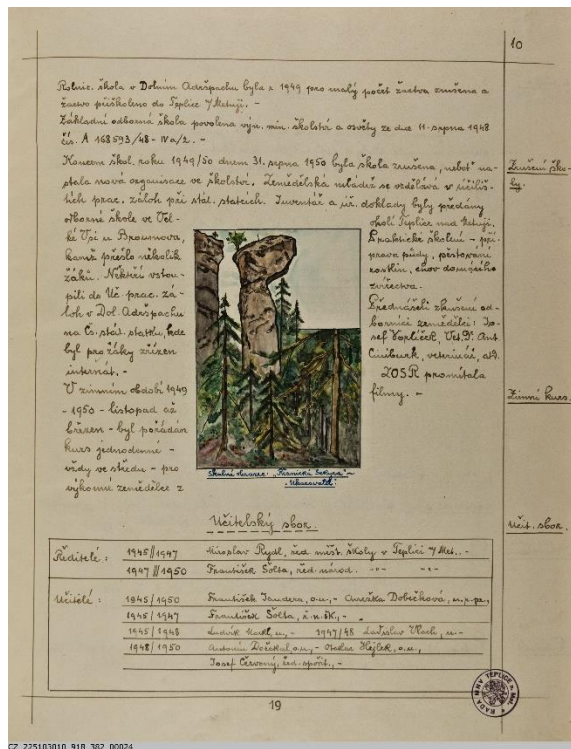 10
Rolnic. škola v Dolním Adršpachu byla r. 1949 pro malý počet žactva zrušena a
žactvo přiškoleno do Teplice n/Metují. -
Základní odborná škola povolena výn. min. školství a osvěty ze dne 11. srpna 1948
čís. A 168593/48 - IVa/2. -
Koncem škol. roku 1949/50 dnem 31. srpna 1950 byla škola zrušena, neboť na-
stala nová organisace ve školství. Zemědělská mládež se vzdělává v učiliš-
tích prac. záloh při stát. statcích. Inventář a úř. doklady byly předány
Zrušení ško-
ly.
odborné škole ve Vel-
ké Vsi u Broumova,
kamž přešlo několik
žáků. Někteří vstou-
pili do Uč. prac. zá-
loh v Dol. Adršpachu
na čs. stát. statku, kde
byl pro žáky zřízen
internát. -
V zimním období 1949
- 1950 - listopad až
březen - byl pořádán
kurs jednodenní -
vždy ve středu - pro
výkonné zemědělce z
okolí Teplice nad Metují.
Praktické školení - pří-
prava půdy, pěstování
rostlin, chov domácího
zvířectva.
Přednášeli zkušení od-
borníci zemědělci: Jo-
sef Vorlíček, Vet. Dr. Ant.
veterinář, atd.
ZOSR promítala
filmy. -
Zimní kurs.
Skalní Sekyra"
Učitelský sbor.
Učit. sbor.
Ředitelé: 1945//1947 Miroslav Rydl, řed. měst. školy v Teplici n/Met., -
1947//1950 František Šolta, řed. národ. -"- -"-
Učitelé: 1945/1950 František Jandera, o.u., - Anežka Dobešková,
1945/1947 František Šolta,
1945/1948 Ludvík 1947/48 Ladislav Vlach, u. -
1948/1950 Antonín o.u., - Otakar Hejlek, o.u.,
Josef Červený, řed. spořit., -
RADA MNV TEPLICE n. Met.
19
CZ_225103010_918_382_00024